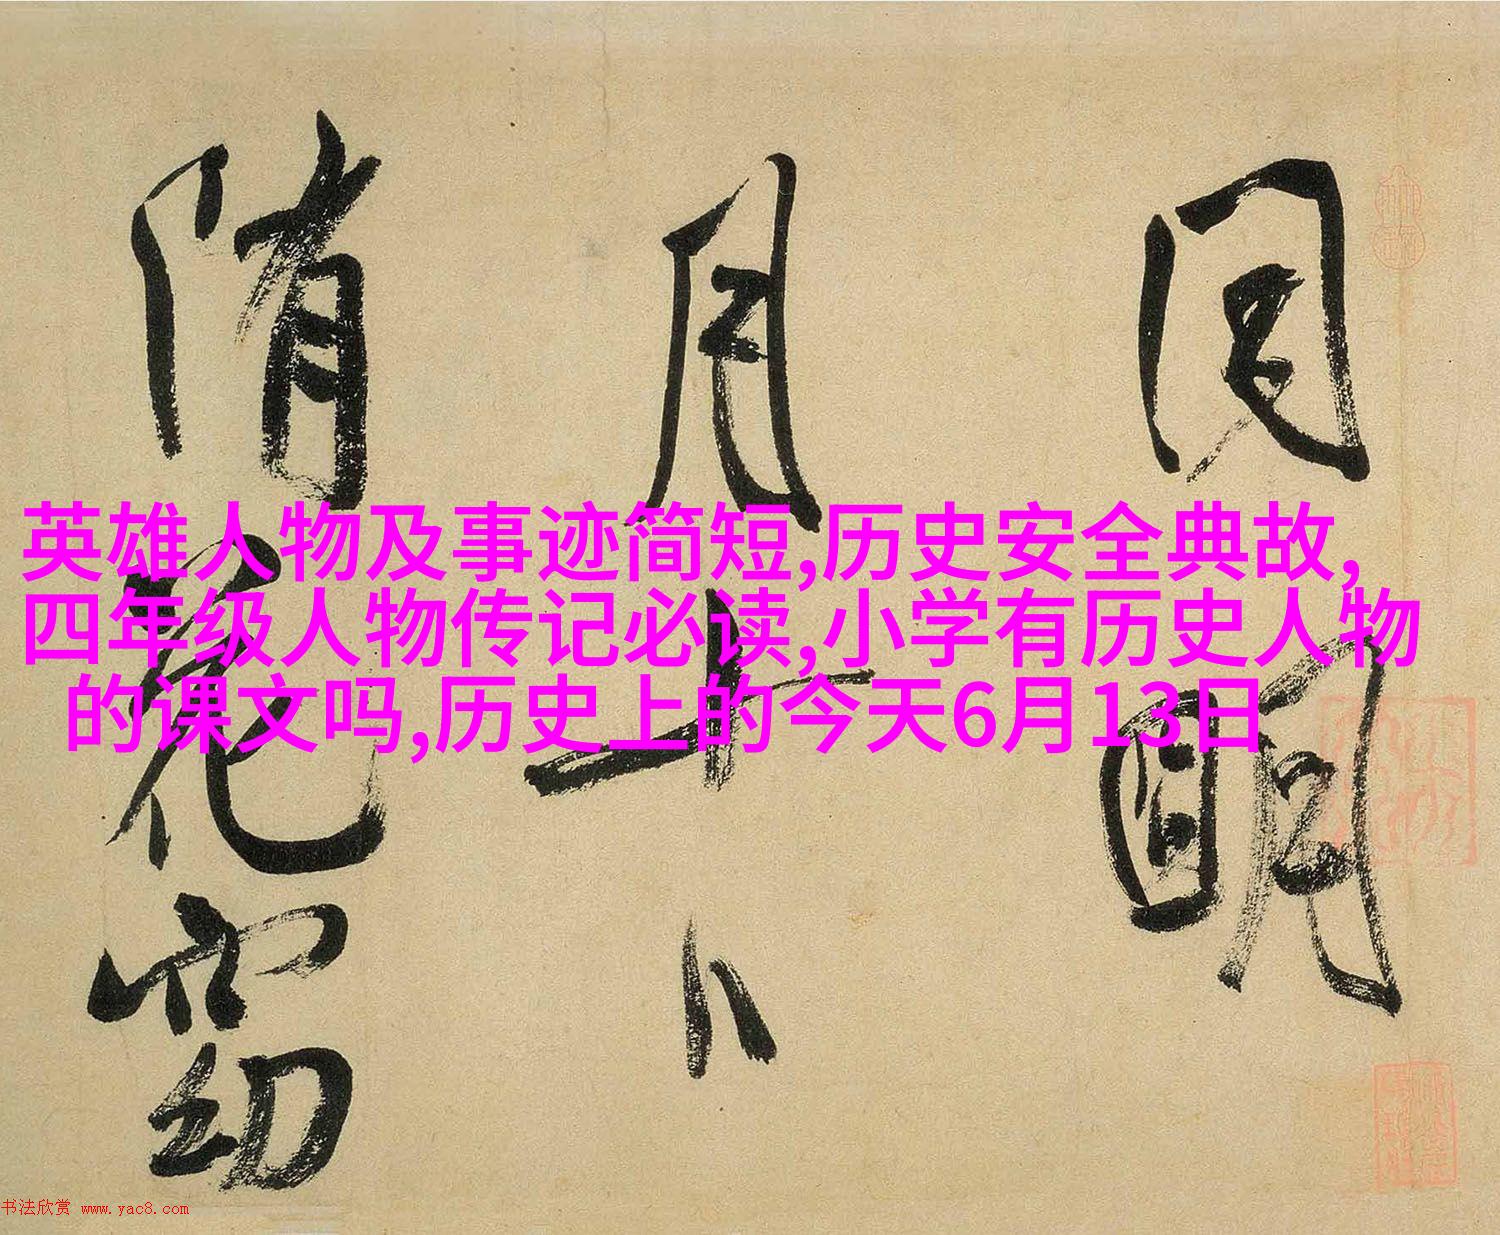 同明
月十八
隋苑窈
英雄人物及事迹简短,历史安全典故,
四年级人物传记必读,小学有历史人物
的课文吗,历史上的今天6月13日
书法欣赏 www.yac8.com